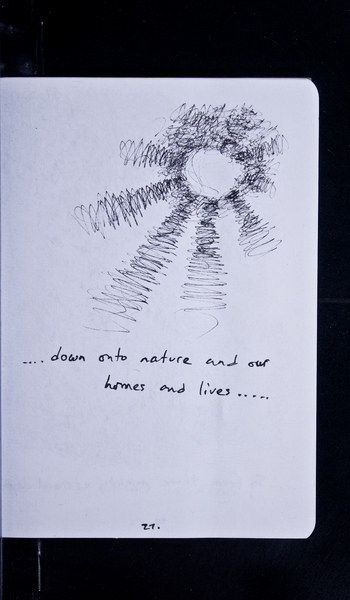 .... down onto nature and our
homes and lives .....
27.